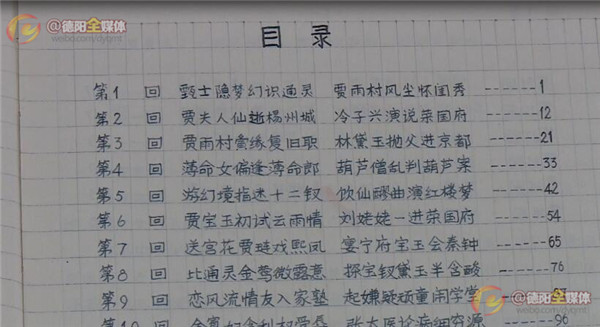 @德阳全媒体
weibo.com/dyqmt
@德阳全媒体
目录
第1回 甄士隐梦幻识通灵 贾雨村风尘怀闺秀 ------1
第2回 贾夫人仙逝扬州城 冷子兴演说荣国府 ------12
第3回 贾雨村夤缘复旧职 林黛玉抛父进京都 ------21
第4回 薄命女偏逢薄命郎 葫芦僧乱判葫芦案 ------33
第5回 游幻境指迷十二钗 饮仙醪曲演红楼梦 ------42
第6回 贾宝玉初试云雨情 刘姥姥一进荣国府 ------54
第7回 送宫花贾琏戏熙凤 宴宁府宝玉会秦钟 ------65
第8回 比通灵金莺微露意 探宝钗黛玉半含酸 ------76
第9回 恋风流情友入家塾 起嫌疑顽童闹学堂
第10回 金寡妇贪利权受辱 张太医论病细穷源 ------96